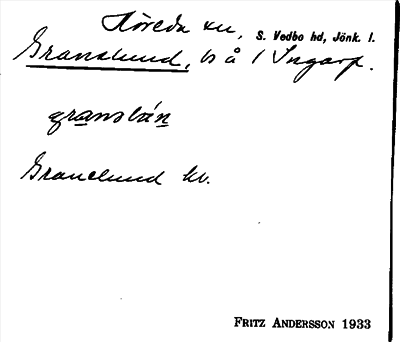 Höreda sn, S. Vedbo hd, Jönk. l.
Granslund, ls å 1 Ingarp.
granslún
Granelund kv.
FRITZ ANDERSSON 1933